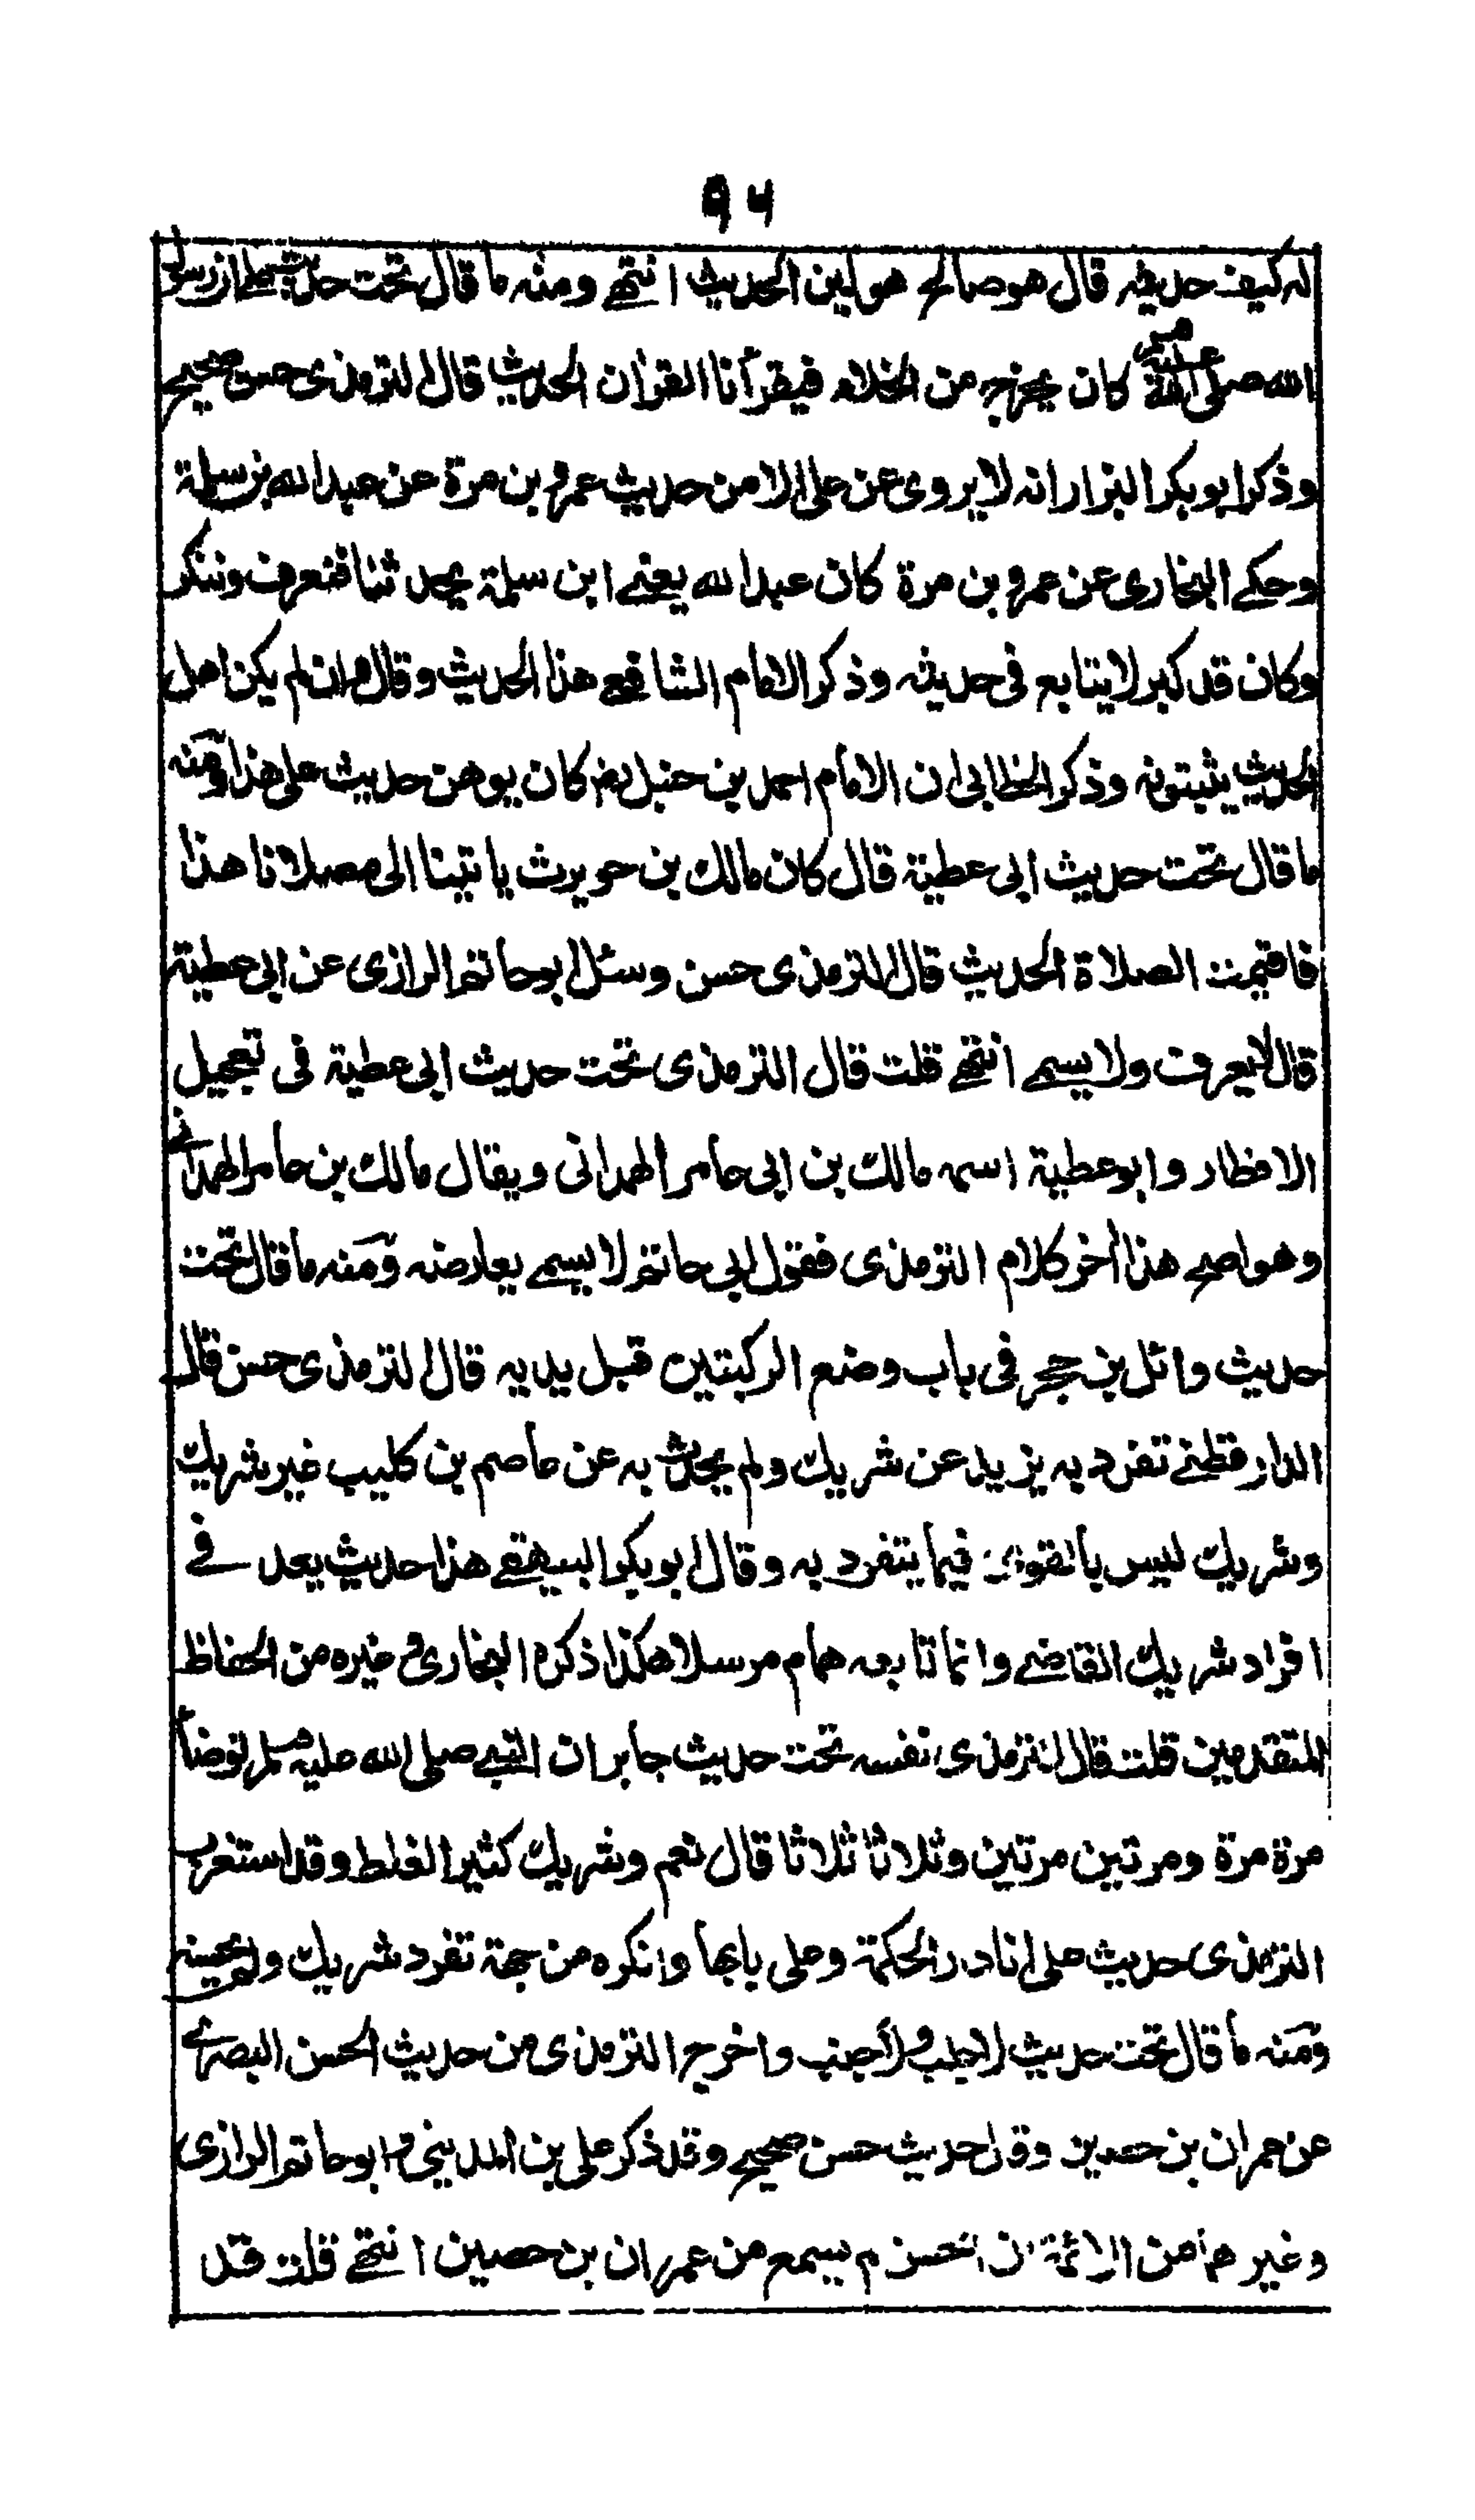 ٩٦
له كيف حديثه قال هو صالح هو لين الحديث انتهے ومنه ما قال تحت حديث علی ان رسول
الله صلی الله عليه وسلم كان يخرج من الخلاء فيقرأنا القرأن الحديث قال الترمذی حسن صحيح
وذكر ابو بكر البزار انه لا يروی عن علی الا من حديث عمرو بن مرة عن عبد الله بن سلمة
وحكے البخاری عن عمرو بن مرة كان عبد الله يعنے ابن سلمة يحدثنا فتعرف وتنكر
وكان قد كبر لا يتابع فی حديثه وذكر الامام الشافعے هذا الحديث وقال وان لم يكن اهل
الحديث يثبتونه وذكر الخطابی ان الامام احمد بن حنبل رض كان يوهن حديث علی هذا ومنه
ما قال تحت حديث ابی عطية قال كان مالك بن حويرث ياتينا الی مصلانا هذا
فاقيمت الصلاة الحديث قال الترمذی حسن وسئل ابو حاتم الرازی عن ابی عطية
قال لا يعرف ولا يسمے انتهے قلت قال الترمذی تحت حديث ابی عطية فی تعجيل
الافطار وابو عطية اسمه مالك بن ابی عامر الهمدانی ويقال مالك بن عامر الهمدانے
وهو اصح هذا أخر كلام الترمذی فقول ابی حاتم لا يسمے يعارضه ومنه ما قال تحت
حديث وائل بن حجر فی باب وضع الركبتين قبل يديه قال الترمذی حسن قال
الدار قطنے تفرد به يزيد عن شريك ولم يحدث به عن عاصم بن كليب غير شريك
وشريك ليس بالقوی فيما يتفرد به وقال ابو بكر البيهقے هذا حديث يعد فے
افراد شريك القاضے وانما تابعه همام مرسلا هكذا ذكره البخاری وغيره من الحفاظ
المتقدمين قلت قال الترمذی نفسه تحت حديث جابر ان النبے صلی الله عليه وسلم توضأ
مرة مرة ومرتين مرتين وثلاثا ثلاثا قال نعم وشريك كثير الغلط وقد استغرب
الترمذی حديث علی انا دار الحكمة وعلی بابها وانكره من جهة تفرد شريك ولم يحسنه
ومنه ما قال تحت حديث لا جلب ولا جنب واخرج الترمذی من حديث الحسن البصرے
عن عمران بن حصين وقال حديث حسن صحيح وقد ذكر علی بن المدينی وابو حاتم الرازی
وغيرهما من الائمة ان الحسن لم يسمع من عمران بن حصين انتهے قلت قد